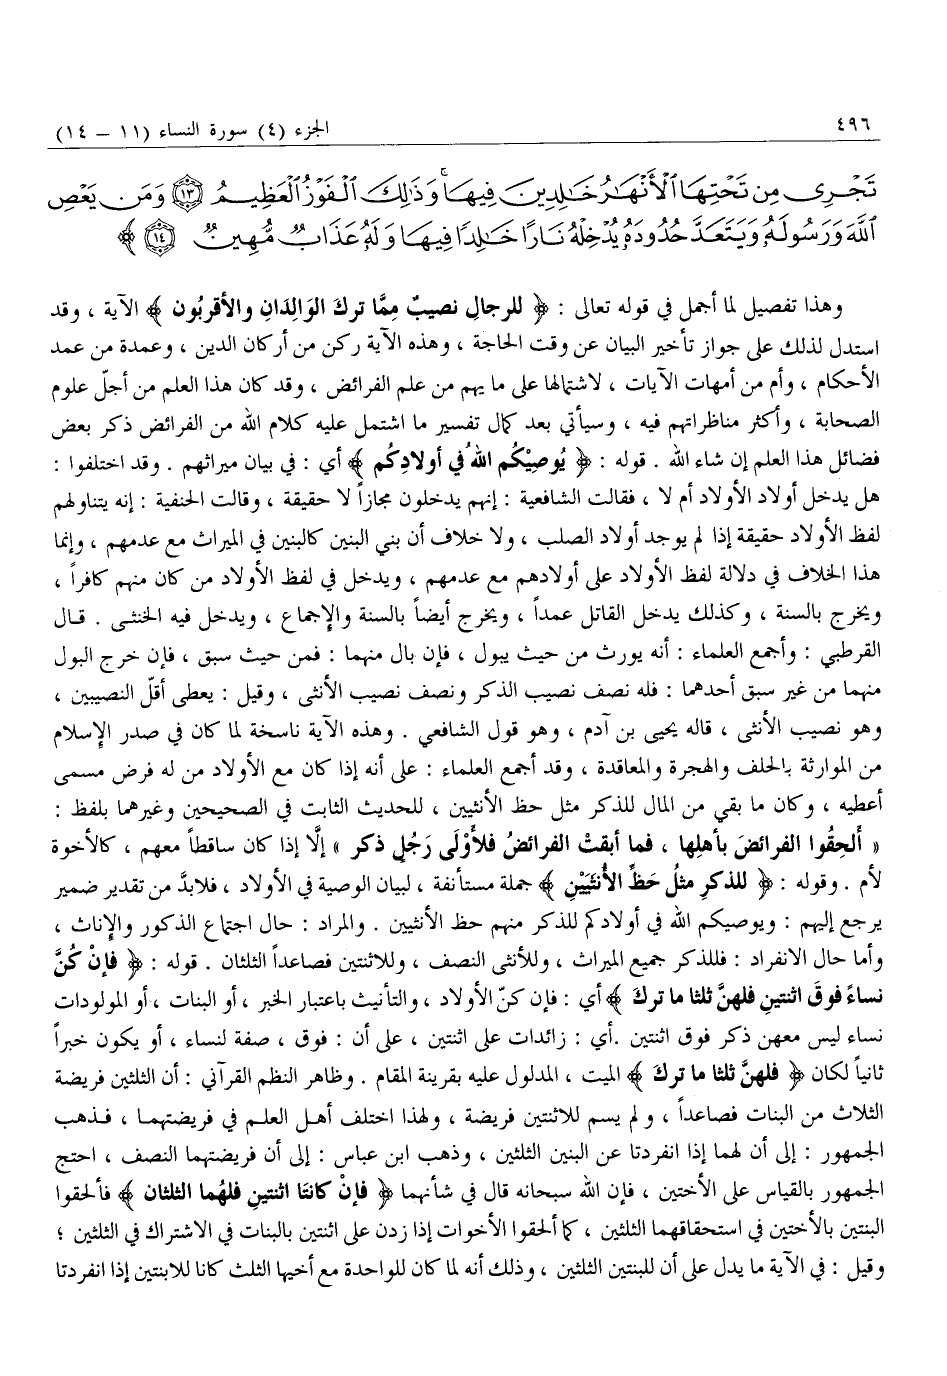 ٤٩٦
الجزء (٤) سورة النساء (١١ – ١٤)
تَجْرِى مِن تَحْتِهَا ٱلْأَنْهَٰرُ خَٰلِدِينَ فِيهَا ۚ وَذَٰلِكَ ٱلْفَوْزُ ٱلْعَظِيمُ ١٣ وَمَن يَعْصِ
ٱللَّهَ وَرَسُولَهُۥ وَيَتَعَدَّ حُدُودَهُۥ يُدْخِلْهُ نَارًا خَٰلِدًا فِيهَا وَلَهُۥ عَذَابٌ مُّهِينٌ ١٤ ﴾
وهذا تفصيل لما أجمل في قوله تعالى : ﴿ للرجالِ نصيبٌ مِمَّا ترك الوَالِدَانِ والأقربُون ﴾ الآية ، وقد
استدل لذلك على جواز تأخير البيان عن وقت الحاجة ، وهذه الآية ركن من أركان الدين ، وعمدة من عمد
الأحكام ، وأم من أمهات الآيات ، لاشتمالها على ما يهم من علم الفرائض ، وقد كان هذا العلم من أجلّ علوم
الصحابة ، وأكثر مناظراتهم فيه ، وسيأتي بعد كمال تفسير ما اشتمل عليه كلام الله من الفرائض ذكر بعض
فضائل هذا العلم إن شاء الله . قوله : ﴿ يُوصِيْكُم اللهُ في أولادِكُم ﴾ أي : في بيان ميراثهم . وقد اختلفوا :
هل يدخل أولاد الأولاد أم لا ، فقالت الشافعية : إنهم يدخلون مجازاً لا حقيقة ، وقالت الحنفية : إنه يتناولهم
لفظ الأولاد حقيقة إذا لم يوجد أولاد الصلب ، ولا خلاف أن بني البنين كالبنين في الميراث مع عدمهم ، وإنما
هذا الخلاف في دلالة لفظ الأولاد على أولادهم مع عدمهم ، ويدخل في لفظ الأولاد من كان منهم كافراً ،
ويخرج بالسنة ، وكذلك يدخل القاتل عمداً ، ويخرج أيضاً بالسنة والإجماع ، ويدخل فيه الخنثى . قال
القرطبي : وأجمع العلماء : أنه يورث من حيث يبول ، فإن بال منهما : فمن حيث سبق ، فإن خرج البول
منهما من غير سبق أحدهما : فله نصف نصيب الذكر ونصف نصيب الأنثى ، وقيل : يعطى أقلّ النصيبين ،
وهو نصيب الأنثى ، قاله يحيى بن آدم ، وهو قول الشافعي . وهذه الآية ناسخة لما كان في صدر الإسلام
من الموارثة بالحلف والهجرة والمعاقدة ، وقد أجمع العلماء : على أنه إذا كان مع الأولاد من له فرض مسمى
أعطيه ، وكان ما بقي من المال للذكر مثل حظ الأنثيين ، للحديث الثابت في الصحيحين وغيرهما بلفظ :
« ألحِقُوا الفرائضَ بأهلِها ، فما أبقتْ الفرائضُ فلأَوْلَى رَجُلٍ ذكر » إلَّا إذا كان ساقطاً معهم ، كالأخوة
لأم . وقوله : ﴿ للذكرِ مثلُ حَظِّ الأُنثَيَيْنِ ﴾ جملة مستأنفة ، لبيان الوصية في الأولاد ، فلابدَّ من تقدير ضمير
يرجع إليهم : ويوصيكم الله في أولادكم للذكر منهم حظ الأنثيين . والمراد : حال اجتماع الذكور والإناث ،
وأما حال الانفراد : فللذكر جميع الميراث ، وللأنثى النصف ، وللاثنتين فصاعداً الثلثان . قوله : ﴿ فإنْ كُنَّ
نساءً فوقَ اثنتينِ فلهنَّ ثلثا ما تركَ ﴾ أي : فإن كنّ الأولاد ، والتأنيث باعتبار الخبر ، أو البنات ، أو المولودات
نساء ليس معهن ذكر فوق اثنتين .أي : زائدات على اثنتين ، على أن : فوق ، صفة لنساء ، أو يكون خبراً
ثانياً لكان ﴿ فلهنَّ ثلثا ما تركَ ﴾ الميت ، المدلول عليه بقرينة المقام . وظاهر النظم القرآني : أن الثلثين فريضة
الثلاث من البنات فصاعداً ، ولم يسم للاثنتين فريضة ، ولهذا اختلف أهل العلم في فريضتهما ، فذهب
الجمهور : إلى أن لهما إذا انفردتا عن البنين الثلثين ، وذهب ابن عباس : إلى أن فريضتهما النصف ، احتج
الجمهور بالقياس على الأختين ، فإن الله سبحانه قال في شأنهما ﴿ فإنْ كانتَا اثنتينِ فلهُما الثلثان ﴾ فألحقوا
البنتين بالأختين في استحقاقهما الثلثين ، كما ألحقوا الأخوات إذا زدن على اثنتين بالبنات في الاشتراك في الثلثين ؛
وقيل : في الآية ما يدل على أن للبنتين الثلثين ، وذلك أنه لما كان للواحدة مع أخيها الثلث كانا للابنتين إذا انفردتا